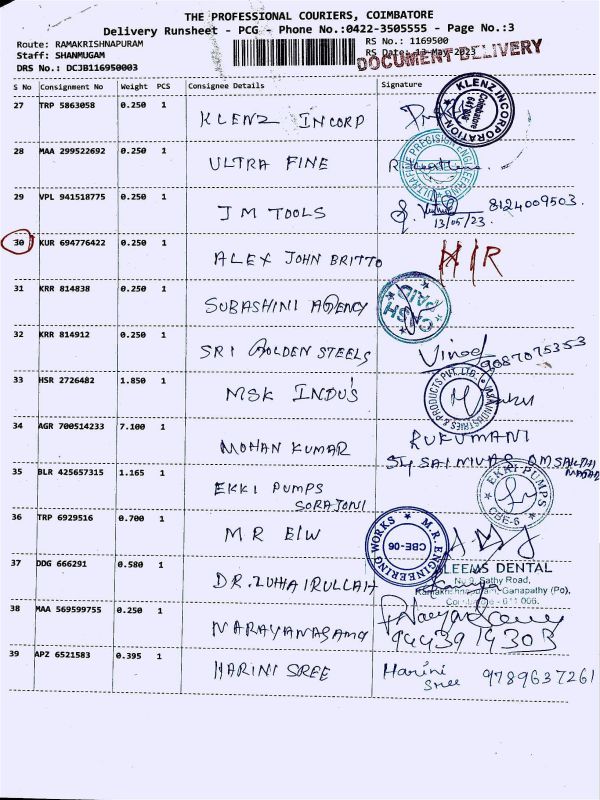 THE PROFESSIONAL COURIERS, COIMBATORE
Delivery Runsheet - PCG - Phone No.:0422-3505555 - Page No.:3
Route: RAMAKRISHNAPURAM RS No.: 1169500
Staff: SHANMUGAM RS Date: 13-May-2023
DRS No.: DCJB116950003 DOCUMENT DELIVERY
S No Consignment No Weight PCS Consignee Details Signature
27 TRP 5863058 0.250 1 KLENZ INCORP KLENZ INCORPORATION Coimbatore
28 MAA 299522692 0.250 1 ULTRA FINE
29 VPL 941518775 0.250 1 JM TOOLS 8124009503.
13/05/23.
30 KUR 694776422 0.250 1 ALEX JOHN BRITTO HIR
31 KRR 814838 0.250 1 SUBASHINI AGENCY CASH PAID
32 KRR 814912 0.250 1 SRI GOLDEN STEELS Vinod 9087075353
33 HSR 2726482 1.850 1 MSK INDU'S
34 AGR 700514233 7.100 1 MOHAN KUMAR RUKUMANI
35 BLR 425657315 1.165 1 EKKI PUMPS EKKI PUMPS CBE-6
36 TRP 6929516 0.700 1 M R E/W M.R. ENGINEERING WORKS CBE-06
37 DDG 666291 0.580 1 DR. ZUHAIRULLAH LEEMS DENTAL
No 9, Sathy Road,
Ramakrishnapuram, Ganapathy (Po),
Coimbatore - 611 006.
38 MAA 569599755 0.250 1 NARAYANASAMY
94439 14303
39 APZ 6521583 0.395 1 HARINI SREE Harini
Sree 9789637261